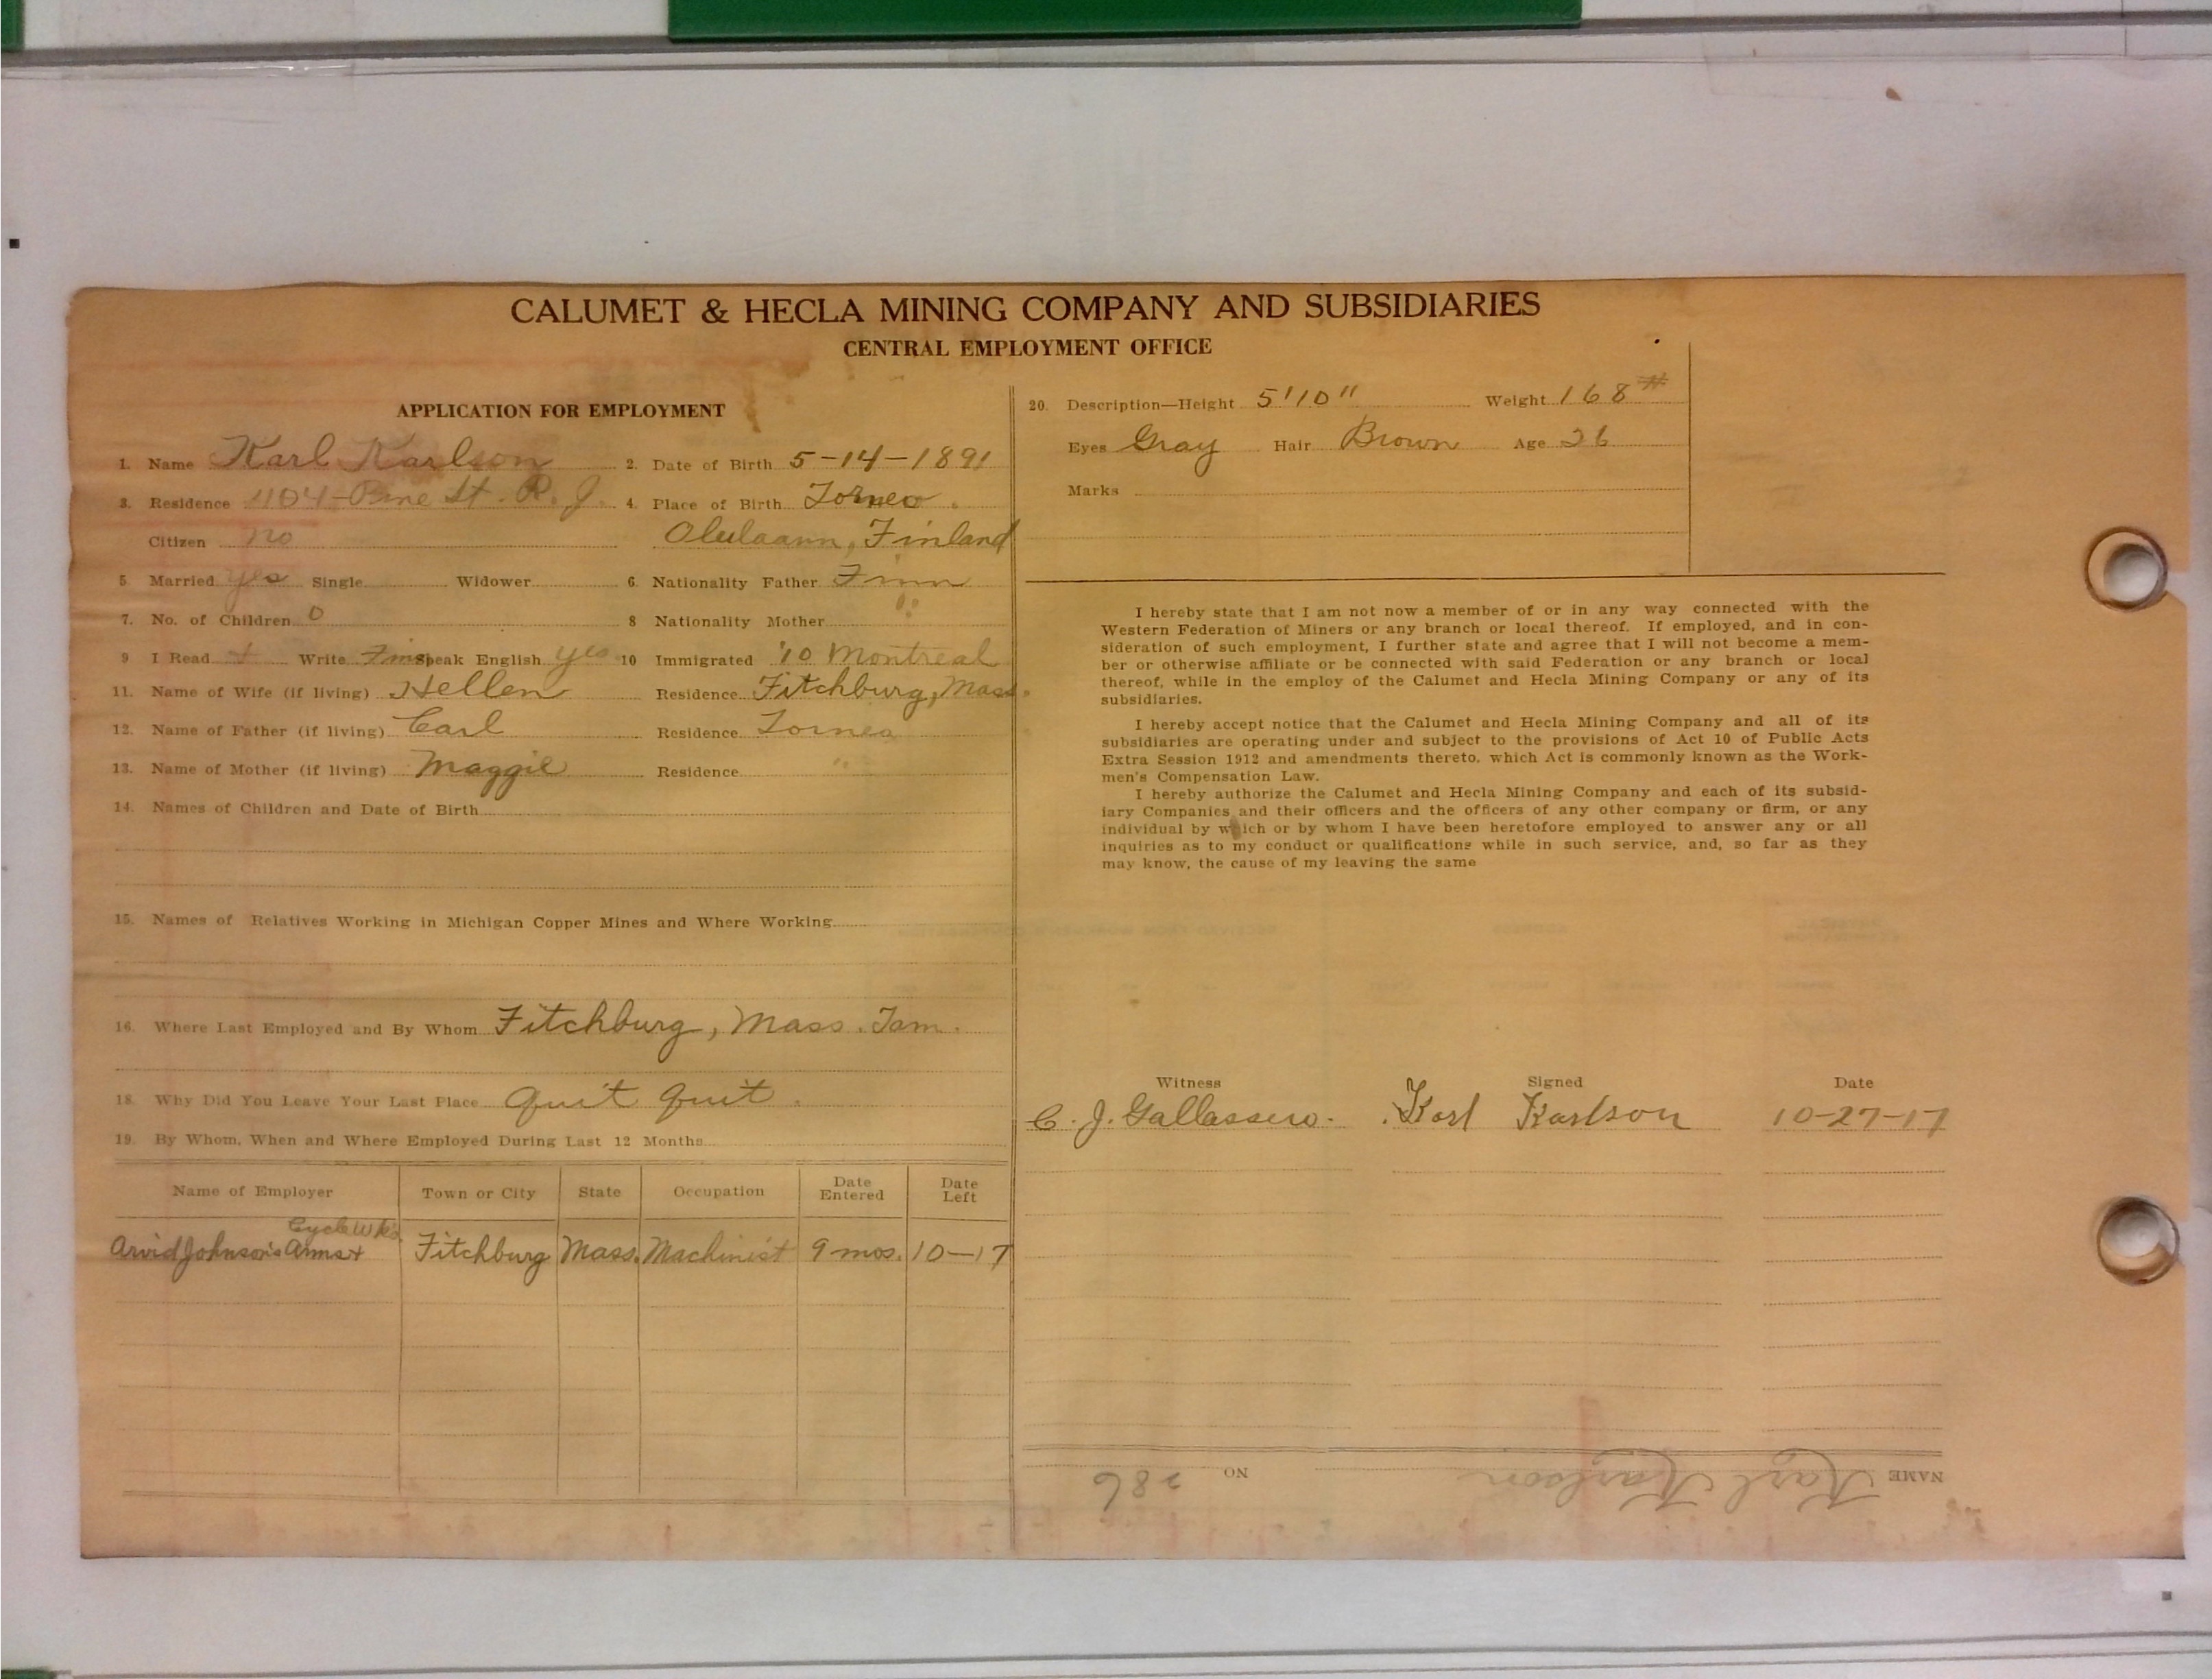 CALUMET & HECLA MINING COMPANY AND SUBSIDIARIES
CENTRAL EMPLOYMENT OFFICE
APPLICATION FOR EMPLOYMENT
1. Name Karl Karlson 2. Date of Birth 5-14-1891
3. Residence 1104-Pine St. R. J. 4. Place of Birth Torneo.
Citizen no Olulaann, Finland
5. Married yes Single Widower 6. Nationality Father Finn
7. No. of Children 0 8 Nationality Mother "
9 I Read + Write Finn Speak English yes 10 Immigrated '10 Montreal
11. Name of Wife (if living) Hellen Residence Fitchburg, Mass.
12. Name of Father (if living) Carl Residence Tornea
13. Name of Mother (if living) Maggie Residence "
14. Names of Children and Date of Birth
15. Names of Relatives Working in Michigan Copper Mines and Where Working
16. Where Last Employed and By Whom Fitchburg, Mass. Jam.
18. Why Did You Leave Your Last Place quit quit.
19. By Whom, When and Where Employed During Last 12 Months
Name of Employer Town or City State Occupation Date Entered Date Left
Cycle Wks.
Arvid Johnson's Arms + Fitchburg Mass. Machinist 9 mos. 10-17
20. Description—Height 5'10" Weight 168#
Eyes Gray Hair Brown Age 26
Marks
I hereby state that I am not now a member of or in any way connected with the
Western Federation of Miners or any branch or local thereof. If employed, and in con-
sideration of such employment, I further state and agree that I will not become a mem-
ber or otherwise affiliate or be connected with said Federation or any branch or local
thereof, while in the employ of the Calumet and Hecla Mining Company or any of its
subsidiaries.
I hereby accept notice that the Calumet and Hecla Mining Company and all of its
subsidiaries are operating under and subject to the provisions of Act 10 of Public Acts
Extra Session 1912 and amendments thereto, which Act is commonly known as the Work-
men's Compensation Law.
I hereby authorize the Calumet and Hecla Mining Company and each of its subsid-
iary Companies and their officers and the officers of any other company or firm, or any
individual by which or by whom I have been heretofore employed to answer any or all
inquiries as to my conduct or qualifications while in such service, and, so far as they
may know, the cause of my leaving the same
Witness Signed Date
C. J. Gallassero. Karl Karlson 10-27-17
NAME Karl Karlson NO 286